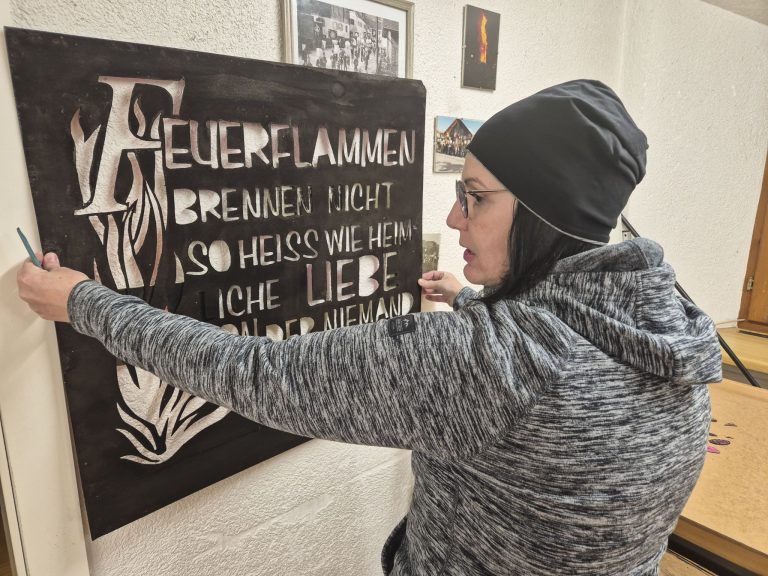 FEUERFLAMMEN
BRENNEN NICHT
SO HEISS WIE HEIM-
LICHE LIEBE
VON DER NIEMAND